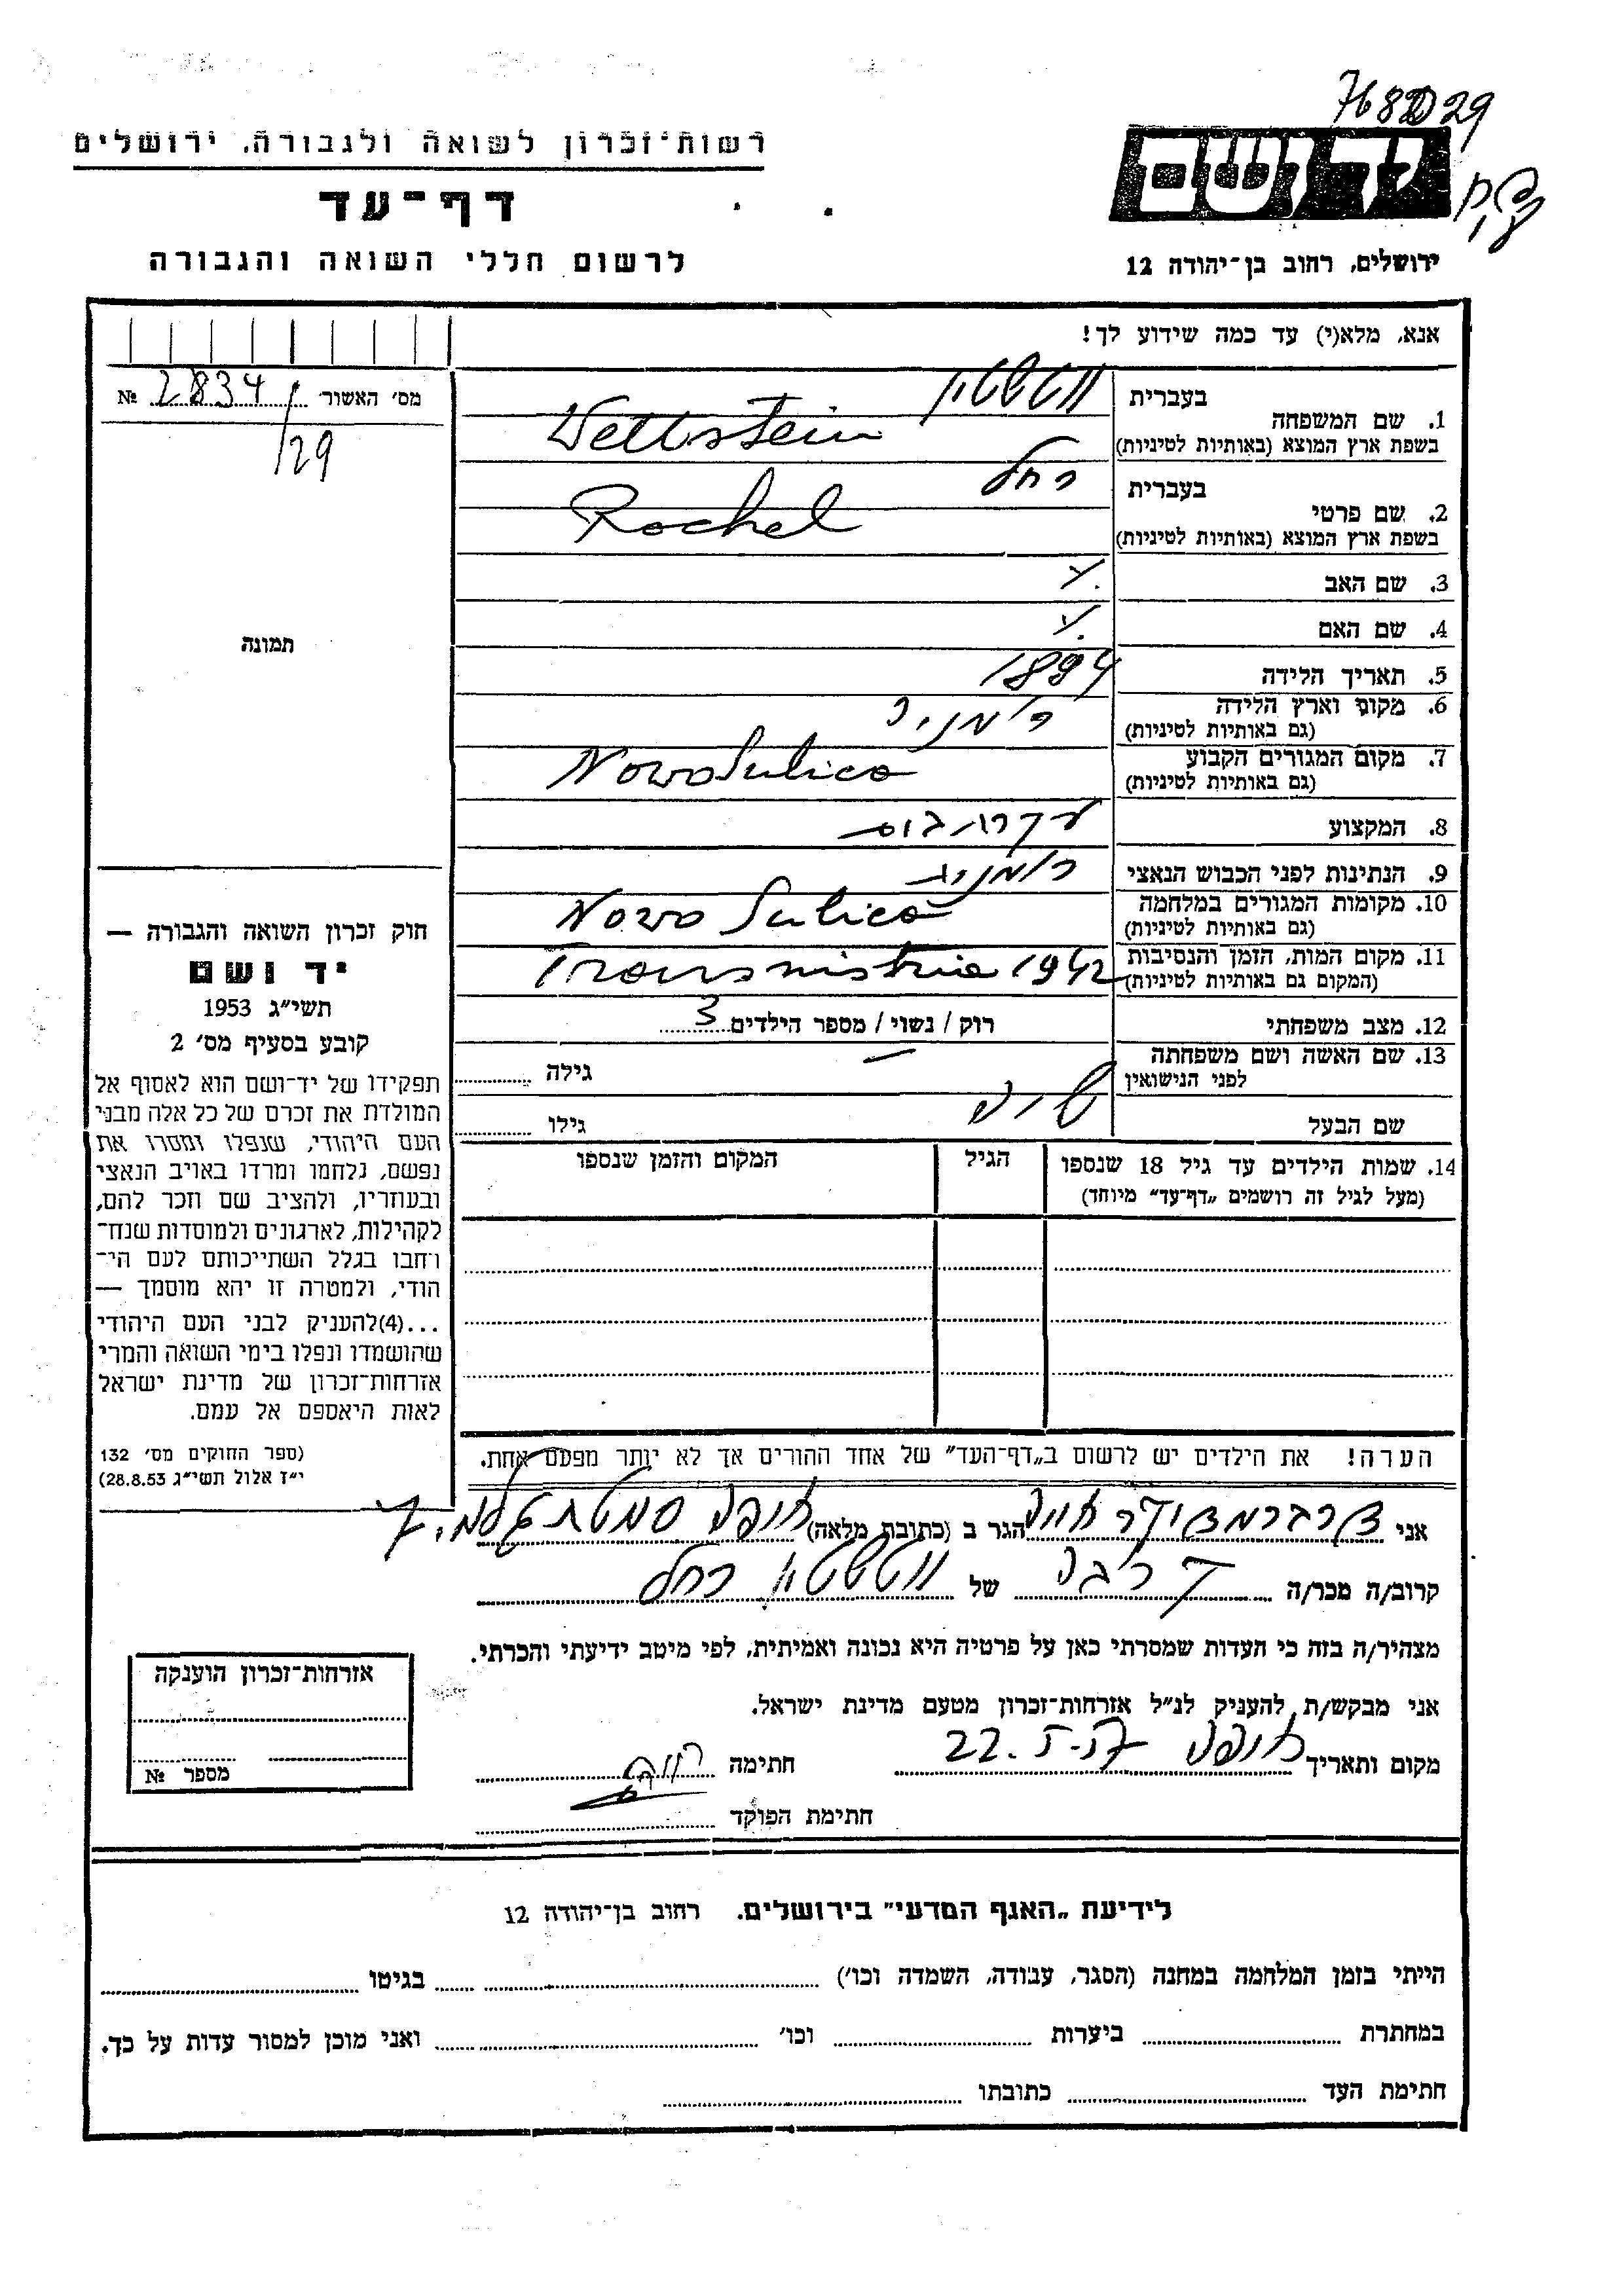 768029
רשות־זכרון לשואה ולגבורה, ירושלים
יד ושם
דף־עד
לרשום חללי השואה והגבורה
ירושלים, רחוב בן־יהודה 12
אנא, מלא(י) עד כמה שידוע לך!
מס׳ האשור № 2834/
/29
1. שם המשפחה
בעברית
בשפת ארץ המוצא (באותיות לטיניות)
Wettstein
2. שם פרטי
בעברית רחל
בשפת ארץ המוצא (באותיות לטיניות)
Rochel
3. שם האב
4. שם האם
תמונה
5. תאריך הלידה 1894
6. מקום וארץ הלידה רומניה
(גם באותיות לטיניות)
7. מקום המגורים הקבוע Nowo Sulica
(גם באותיות לטיניות)
8. המקצוע עקרת בית
9. הנתינות לפני הכבוש הנאצי רומניה
10. מקומות המגורים במלחמה Nowo Sulica
(גם באותיות לטיניות)
11. מקום המות, הזמן והנסיבות Transnistria 1942
(המקום גם באותיות לטיניות)
12. מצב משפחתי רוק / נשוי / מספר הילדים 3
13. שם האשה ושם משפחתה
לפני הנישואין
גילה
שם הבעל
גילו
14. שמות הילדים עד גיל 18 שנספו הגיל המקום והזמן שנספו
(מעל לגיל זה רושמים „דף־עד״ מיוחד)
חוק זכרון השואה והגבורה —
יד ושם
תשי״ג 1953
קובע בסעיף מס׳ 2
תפקידו של יד־ושם הוא לאסוף אל
המולדת את זכרם של כל אלה מבני
העם היהודי, שנפלו ומסרו את
נפשם, נלחמו ומרדו באויב הנאצי
ובעוזריו, ולהציב שם וזכר להם,
לקהילות, לארגונים ולמוסדות שנח־
רחבו בגלל השתייכותם לעם הי־
הודי, ולמטרה זו יהא מוסמך —
...(4)להעניק לבני העם היהודי
שהושמדו ונפלו בימי השואה והמרי
אזרחות־זכרון של מדינת ישראל
לאות היאספם אל עמם.
(ספר החוקים מס׳ 132
י״ז אלול תשי״ג 28.8.53)
הערה! את הילדים יש לרשום ב„דף־העד״ של אחד ההורים אך לא יותר מפעם אחת.
אני הגר ב (כתובת מלאה)
קרוב/ה מכר/ה של רחל
מצהיר/ה בזה כי העדות שמסרתי כאן על פרטיה היא נכונה ואמיתית, לפי מיטב ידיעתי והכרתי.
אני מבקש/ת להעניק לנ״ל אזרחות־זכרון מטעם מדינת ישראל.
מקום ותאריך 22.5.57 חתימה
חתימת הפוקד
אזרחות־זכרון הוענקה
מספר №
לידיעת „האגף המדעי״ בירושלים. רחוב בן־יהודה 12
הייתי בזמן המלחמה במחנה (הסגר, עבודה, השמדה וכו׳) בגיטו
במחתרת ביערות וכו׳ ואני מוכן למסור עדות על כך.
חתימת העד כתובתו